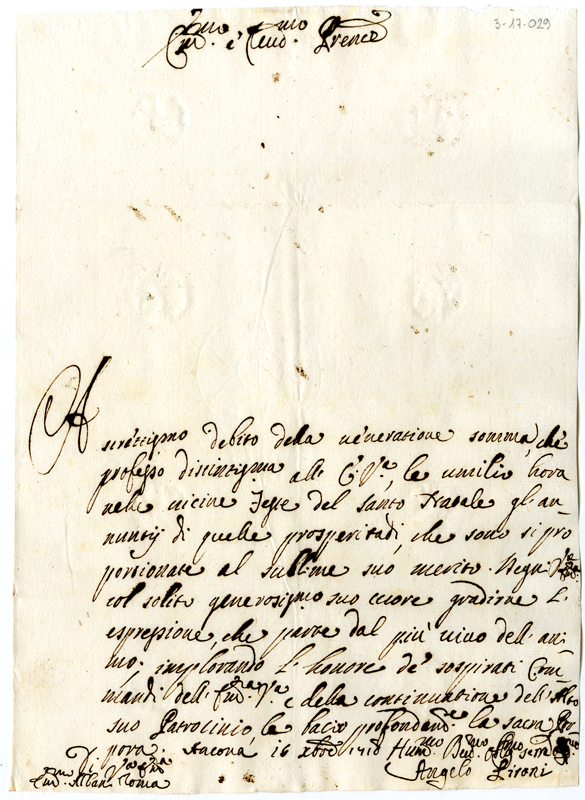 3-17-029
Em.mo e Reud.mo Prence
A strettissimo debito della ueneratione somma, che
professo distintissima all' E. V.a, le umilio hora
nelle uicine Feste del Santo Natale gl' an-
nuntij di quelle prosperitadi, che sono si pro
porzionate al sublime suo merito. Degni
col solito generosissimo suo cuore gradirne l'
espressione, che parte dal più uiuo dell' an-
mo, implorando l' honore de' sospirati Com
mandi dell' Em.za V.a e della continuatione dell' Alto
suo Patrocinio, le bacio profondam.te la sacra Por
pora. Ancona 16 xbre 1718
Di V.a Em.za Hum.mo Deu.mo Obl.mo Seru.
Em.mo Alban. Roma Angelo Pironi